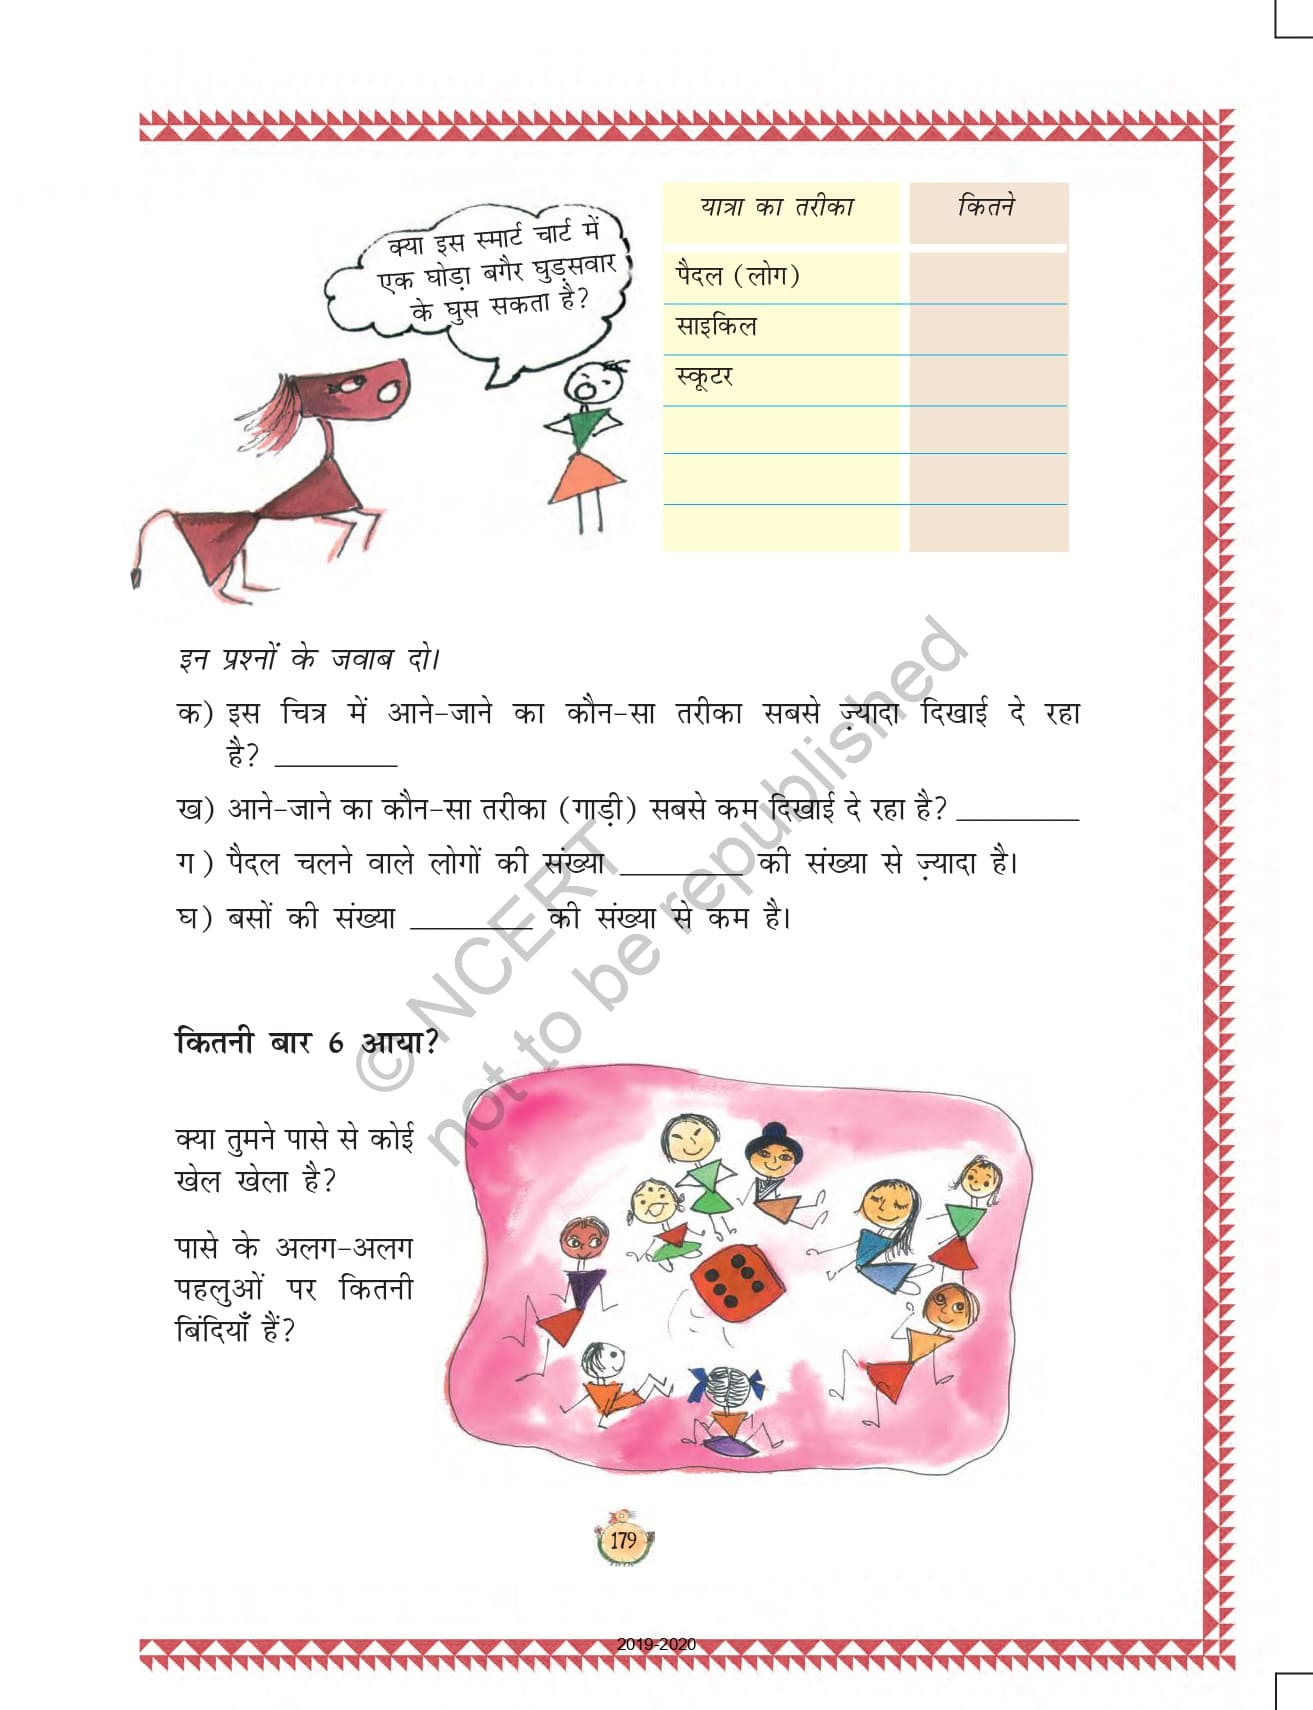 क्या इस स्मार्ट चार्ट में
एक घोड़ा बगैर घुड़सवार
के घुस सकता है?
यात्रा का तरीका कितने
पैदल (लोग)
साइकिल
स्कूटर
इन प्रश्नों के जवाब दो।
क) इस चित्र में आने-जाने का कौन-सा तरीका सबसे ज़्यादा दिखाई दे रहा
है? ________
ख) आने-जाने का कौन-सा तरीका (गाड़ी) सबसे कम दिखाई दे रहा है? ________
ग) पैदल चलने वाले लोगों की संख्या ________ की संख्या से ज़्यादा है।
घ) बसों की संख्या ________ की संख्या से कम है।
© NCERT
not to be republished
कितनी बार 6 आया?
क्या तुमने पासे से कोई
खेल खेला है?
पासे के अलग-अलग
पहलुओं पर कितनी
बिंदियाँ हैं?
179
2019-2020